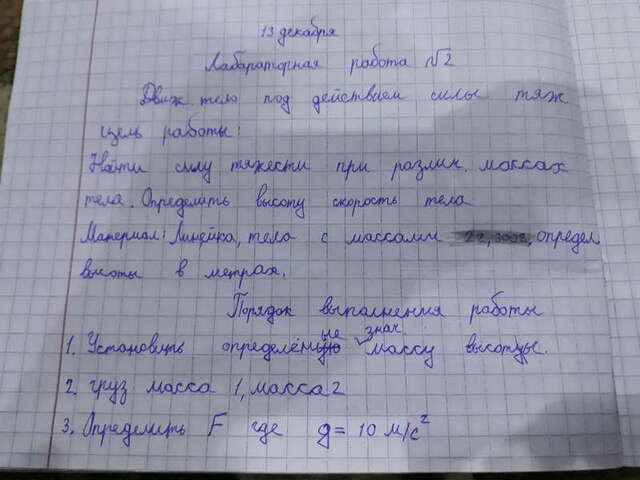 13 декабря
Лабараторная работа №2
Движ тело под действием силы тяж
цель работы:
Найти силу тяжести при различ. массах
тела. Определить высоту скорость тела
Материал: Линейка, тела с массами 300г, определ
высоты в метрах.
Порядок выполнения работы
1. Установить определённые знач. массу высотцы.
2. груз масса 1, масса 2
3. Определить F где g = 10 м/с²